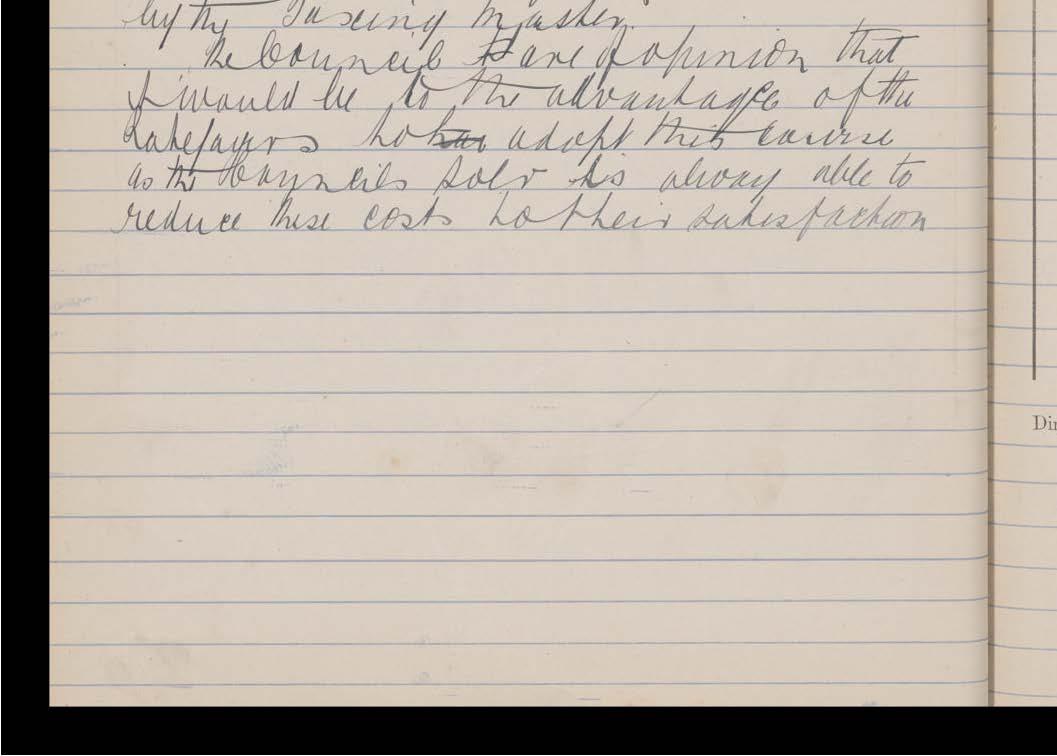 by the Taxing Master.
The Council are of opinion that
it would be to the advantage of the
Ratepayers to adopt this course
as the Councils Solr is alway able to
reduce these costs to their satisfaction
Dir